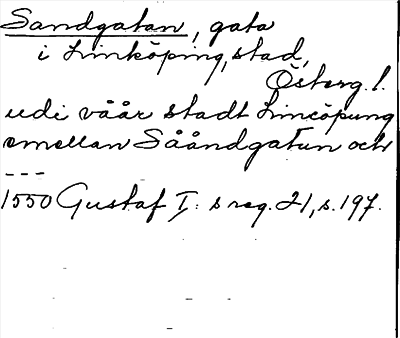 Sandgatan, gata
i Linköping, stad,
Österg. l.
udi våår stadt Lincöpung
emellan Sååndgatun och
---
1550 Gustaf I:s reg. 21, s. 197.